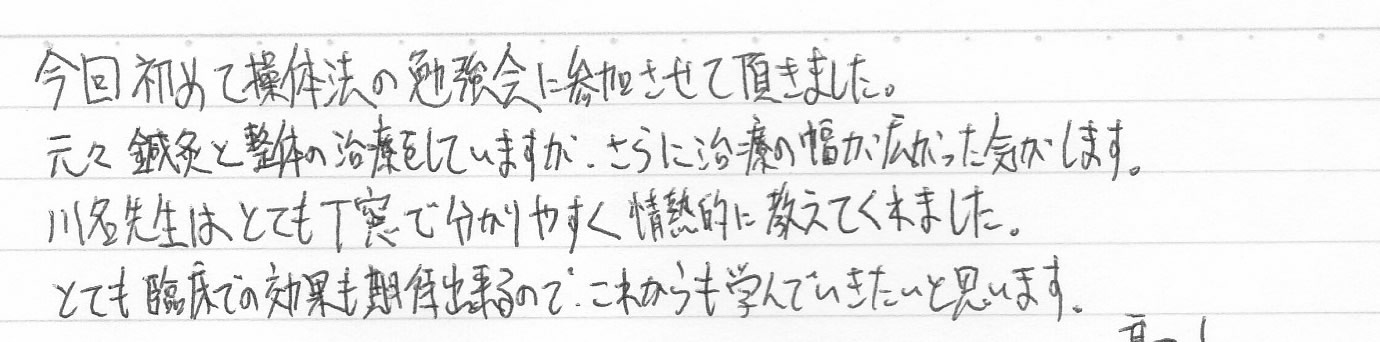 今回初めて操体法の勉強会に参加させて頂きました。
元々鍼灸と整体の治療をしていますが、さらに治療の幅が広がった気がします。
川名先生は、とても丁寧で分かりやすく情熱的に教えてくれました。
とても臨床での効果も期待出来るので、これからも学んでいきたいと思います。